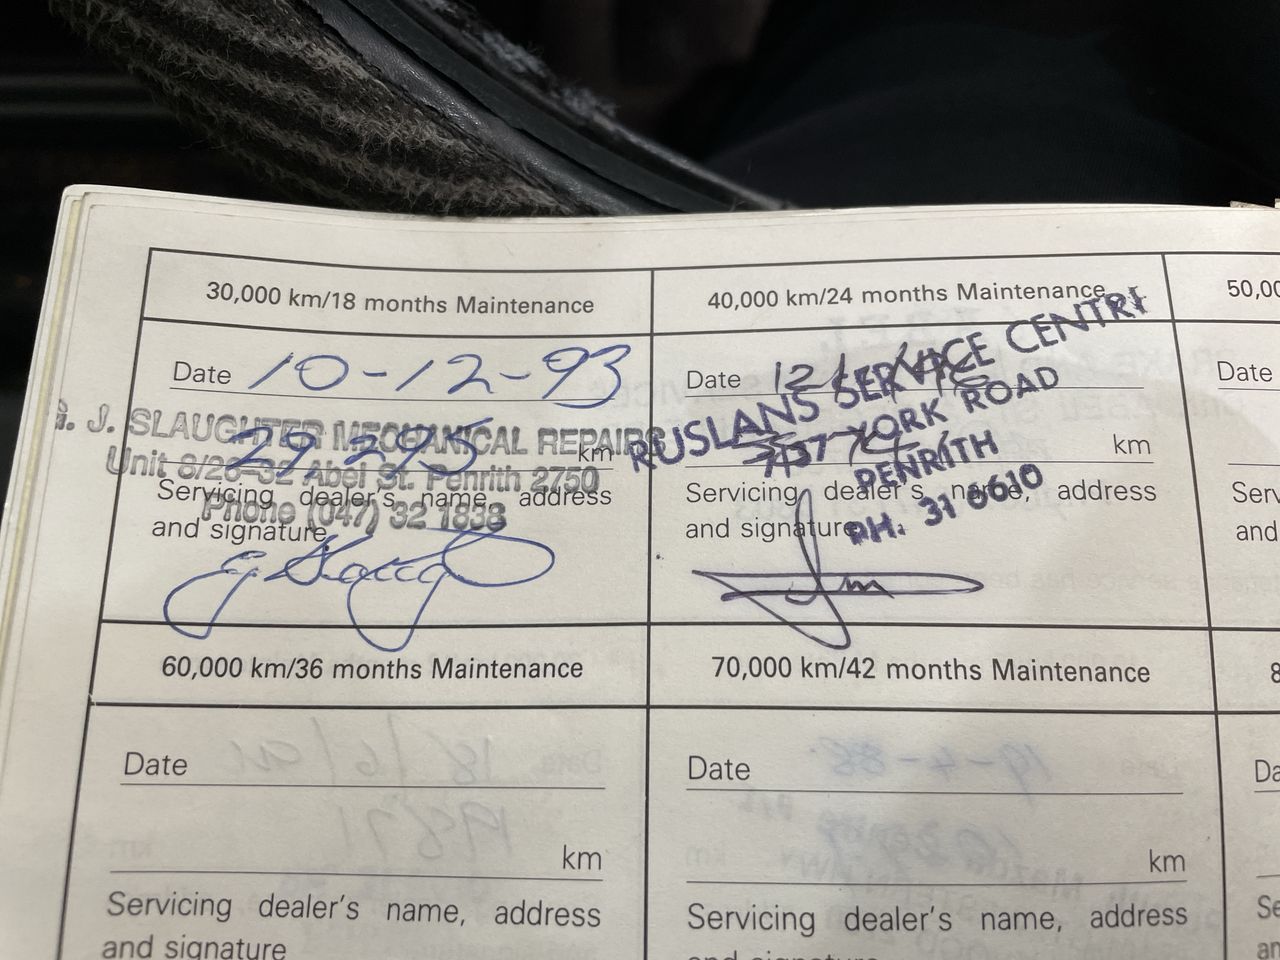 30,000 km/18 months Maintenance
Date 10-12-93
29 295 km
Servicing dealer's name, address
and signature
. J. SLAUGHTER MECHANICAL REPAIRS
Unit 6/28-32 Abel St. Penrith 2750
Phone (047) 32 1838
40,000 km/24 months Maintenance
Date
km
Servicing dealer's name, address
and signature
RUSLANS SERVICE CENTRE
YORK ROAD
PENRITH
PH. 31 6610
50,00
Date
Serv
and
60,000 km/36 months Maintenance
Date
km
Servicing dealer's name, address
and signature
70,000 km/42 months Maintenance
Date
km
Servicing dealer's name, address
and signature
8
Da
Se
an